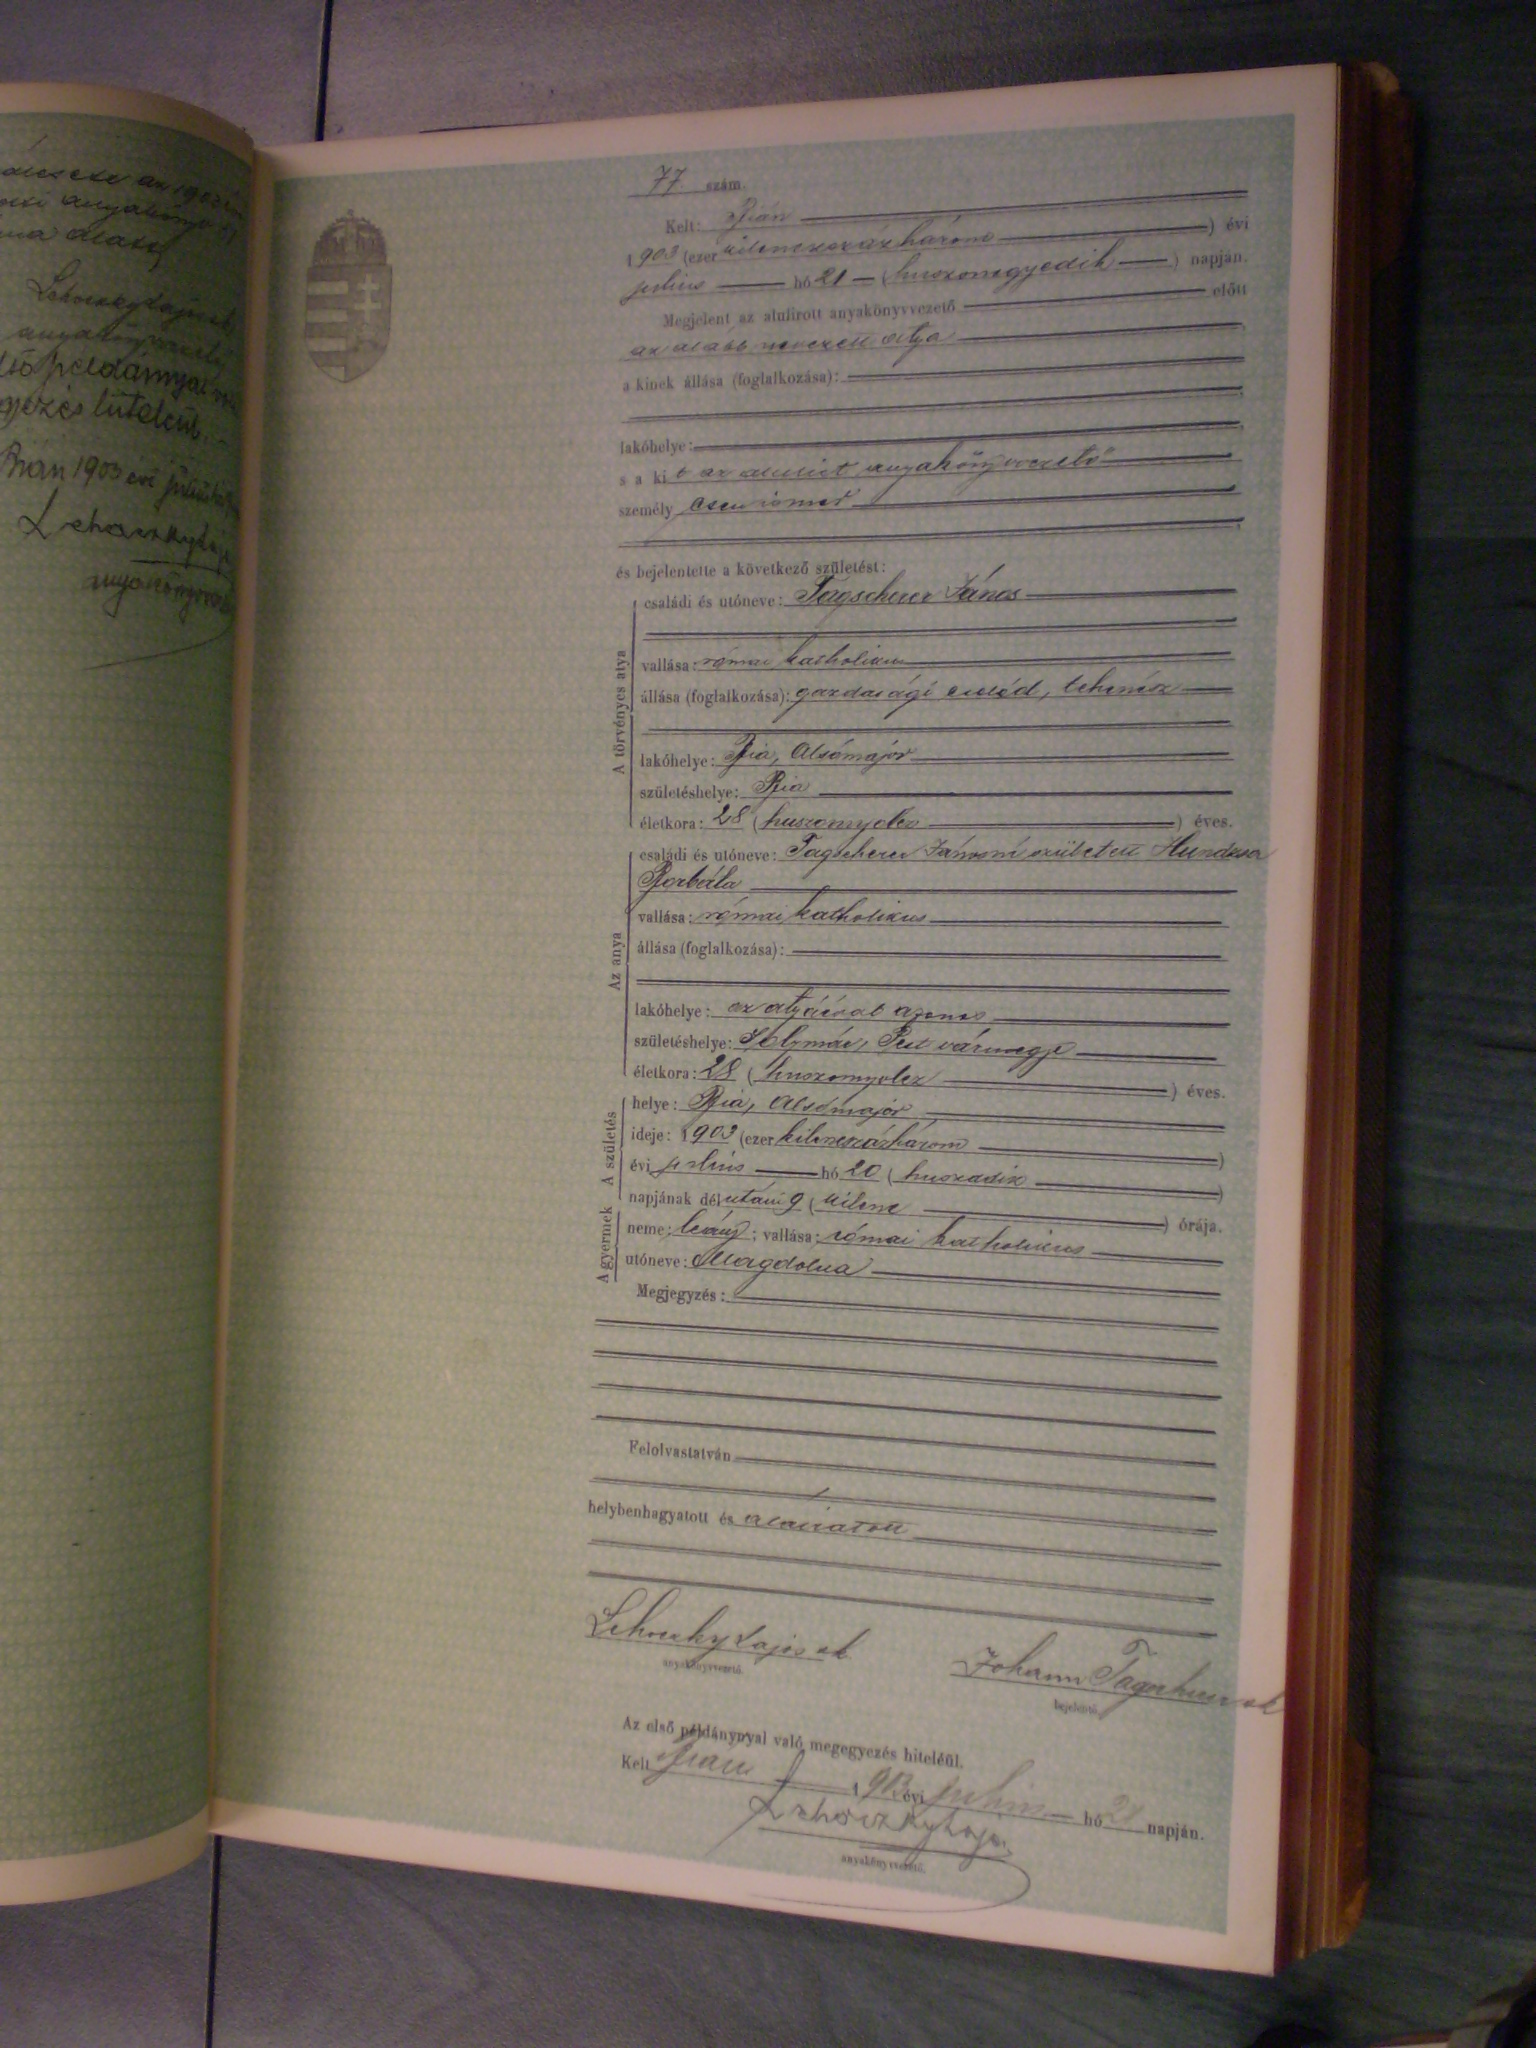 az 1903
anyakönyv
alatt
Lehoczky Lajos sk
anyakönyvvezető
első példányal való
egyezés hiteleül.
Bián 1903 évi július hó
Lehoczky Lajos
anyakönyvvezető
77 szám.
Kelt: Bián
1903 (ezer kilenczszázhárom ) évi
július hó 21 (huszonegyedik ) napján.
Megjelent az alulirott anyakönyvvezető előtt
az alább nevezett atya
a kinek állása (foglalkozása):
lakóhelye:
s a kit az alulirt anyakönyvvezető
személyesen ismer
és bejelentette a következő születést:
A törvényes atya
családi és utóneve: Tagscherer János
vallása: római katholikus
állása (foglalkozása): gazdasági cseléd, tehenész
lakóhelye: Bia, Alsómajor
születéshelye: Bia
életkora: 28 (huszonnyolcz ) éves.
Az anya
családi és utóneve: Tagscherer Jánosné született Hundzsa
Borbála
vallása: római katholikus
állása (foglalkozása):
lakóhelye: az atyáéval azonos
születéshelye: Solymár, Pest vármegye
életkora: 28 (huszonnyolcz ) éves.
A születés
helye: Bia, Alsómajor
ideje: 1903 (ezer kilenczszázhárom )
évi július hó 20 (huszadik )
napjának délutáni 9 (kilencz ) órája.
A gyermek
neme: leány; vallása: római katholikus
utóneve: Magdolna
Megjegyzés:
Felolvastatván
helybenhagyatott és aláiratott
Lehoczky Lajos sk
anyakönyvvezető.
Johann Tagscherer sk
bejelentő.
Az első példánynyal való megegyezés hiteléül.
Kelt Bián 1903 évi július hó 21 napján.
Lehoczky Lajos
anyakönyvvezető.